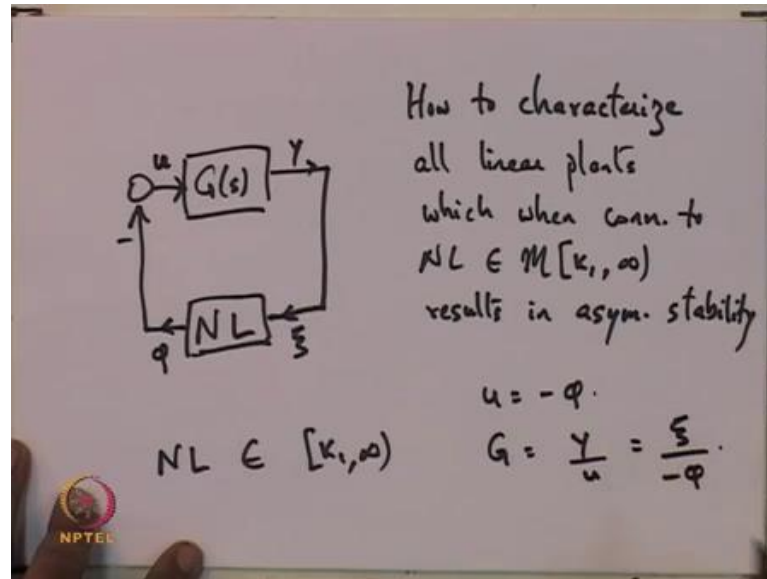 How to characterize
all linear plants
which when conn. to
NL ∈ M[K₁, ∞)
results in asym. stability
u
G(s)
y
-
NL
φ
ξ
u = -φ.
NL ∈ [K₁, ∞)
G = y/u = ξ/-φ.
NPTEL